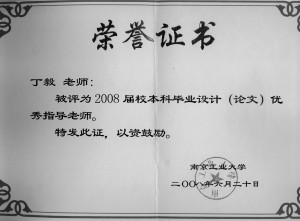 荣誉证书
丁毅 老师：
被评为2008届校本科毕业设计（论文）优
秀指导老师。
特发此证，以资鼓励。
南京工业大学
二〇〇八年六月二十日